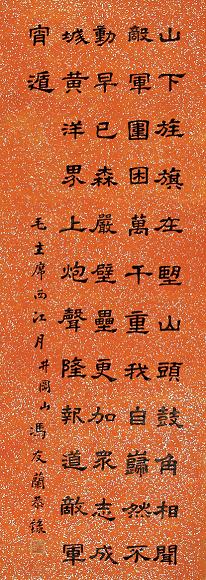 山下旌旗在朢山頭鼓角相聞
敵軍圍困萬千重我自巋然不
動早已森嚴壁壘更加眾志成
城黃洋界上炮聲隆報道敵軍
宵遁
毛主席西江月井岡山 馮友蘭恭錄